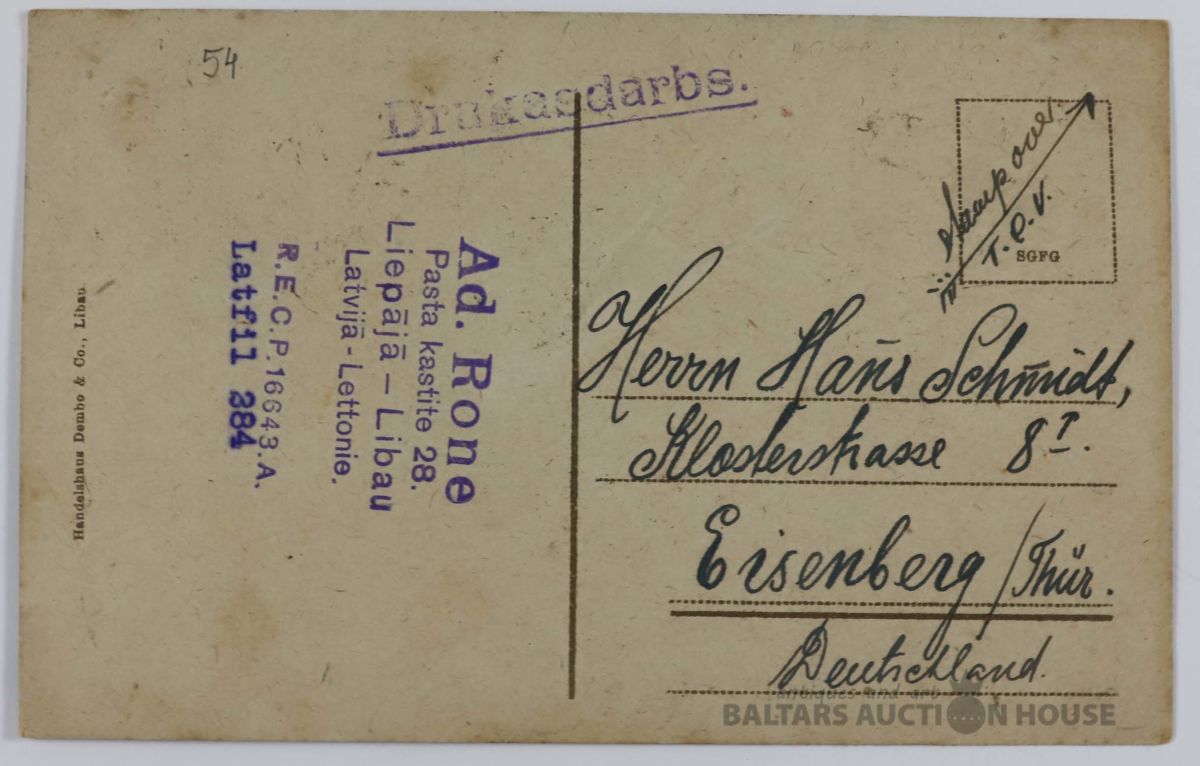 54
Drukasdarbs.
Ad. Rone
Pasta kastite 28.
Liepājā – Libau
Latvijā - Lettonie.
R.E.C.P.16643.A.
Latfil 384
Handelshaus Dembo & Co., Libau
stamp over.
T.P.V.
SGFG
Herrn Hans Schmidt,
Klosterstrasse 8 I.
Eisenberg / Thür.
Deutschland.
antiques and art
BALTARS AUCTION HOUSE